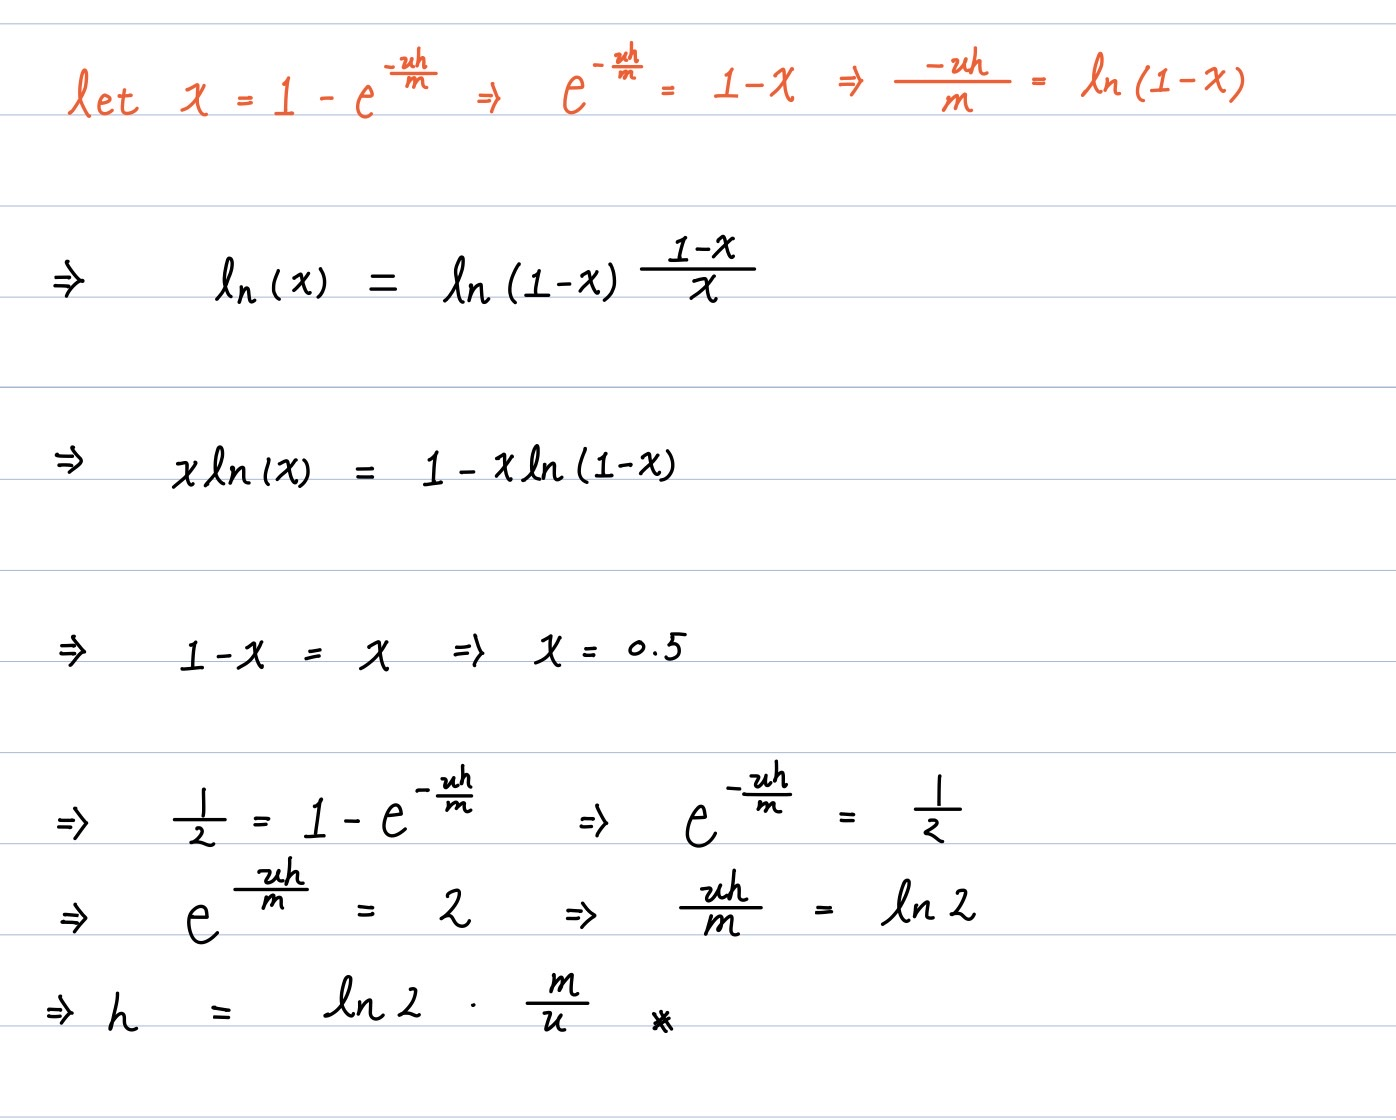 let x = 1 - e^{-\frac{uh}{m}} ⇒ e^{-\frac{uh}{m}} = 1-x ⇒ \frac{-uh}{m} = ln(1-x)
⇒ ln(x) = ln(1-x) \frac{1-x}{x}
⇒ x ln(x) = 1 - x ln(1-x)
⇒ 1-x = x ⇒ x = 0.5
⇒ \frac{1}{2} = 1 - e^{-\frac{uh}{m}} ⇒ e^{-\frac{uh}{m}} = \frac{1}{2}
⇒ e^{\frac{uh}{m}} = 2 ⇒ \frac{uh}{m} = ln 2
⇒ h = ln 2 · \frac{m}{u} *